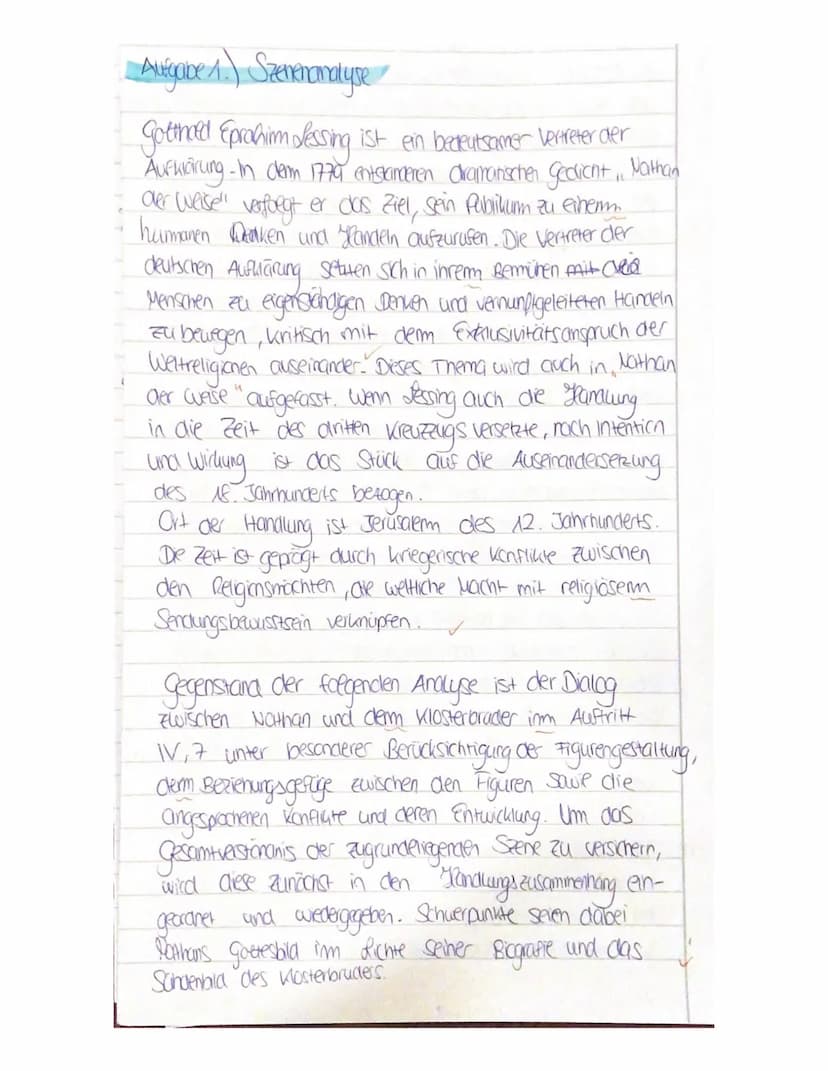 Aufgabe 1.) Szenenanalyse
Gotthold Eprahim Lessing ist ein bedeutsamer Vertreter der
Aufklärung. In dem 1779 entstandenen dramatischen Gedicht „Nathan
der Weise" verfolgt er das Ziel, sein Publikum zu einem
humanen Denken und Handeln aufzurufen. Die Vertreter der
deutschen Aufklärung setzten sich in ihrem Bemühen mit die
Menschen zu eigenständigen Denken und vernunftgeleiteten Handeln
zu bewegen, kritisch mit dem Exklusivitätsanspruch der
Weltreligionen auseinander. Dieses Thema wird auch in „Nathan
der Weise" aufgefasst. Wenn Lessing auch die Handlung
in die Zeit des dritten Kreuzzugs versetzte, nach Intention
und Wirkung ist das Stück auf die Auseinandersetzung
des 18. Jahrhunderts bezogen.
Ort der Handlung ist Jerusalem des 12. Jahrhunderts.
Die Zeit ist geprägt durch kriegerische Konflikte zwischen
den Religionsmächten, die weltliche Macht mit religiösem
Sendungsbewusstsein verknüpfen.
Gegenstand der folgenden Analyse ist der Dialog
zwischen Nathan und dem Klosterbruder im Auftritt
IV, 7 unter besonderer Berücksichtigung der Figurengestaltung,
dem Beziehungsgefüge zwischen den Figuren sowie die
angesprochenen Konflikte und deren Entwicklung. Um das
Gesamtverständnis der zugrundeliegenden Szene zu versichern,
wird diese zunächst in den Handlungszusammenhang ein-
geordnet und wiedergegeben. Schwerpunkte seien dabei
Nathans Gottesbild im Lichte seiner Biografie und das
Sündenbild des Klosterbruders.